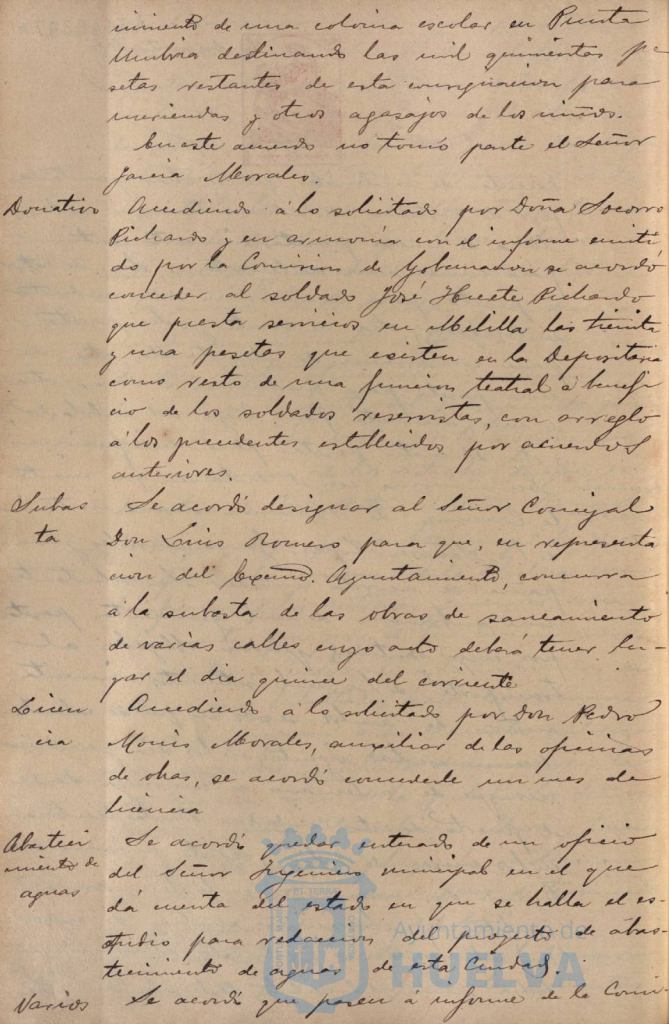 nimiento de una colonia escolar en Punta
Umbria destinando las mil quinientas pe
setas restantes de esta consignacion para
meriendas y otros agasajos de los niños.
En este acuerdo no tomó parte el Señor
Garcia Morales.
Donativo Accediendo á lo solicitado por Doña Socorro
Pichardo y en armonia con el informe emiti
do por la Comision de Gobernacion se acordó
conceder al soldado José Huete Pichardo
que presta servicios en Melilla las treinta
y una pesetas que existen en la Depositaria
como resto de una funcion teatral á benefi
cio de los soldados reservistas, con arreglo
á los precedentes establecidos por acuerdos
anteriores.
Subas
ta
Se acordó designar al Señor Concejal
Don Luis Romero para que, en representa
cion del Excmo. Ayuntamiento, concurra
á la subasta de las obras de saneamiento
de varias calles cuyo acto deberá tener lu-
gar el dia quince del corriente
Licen
cia
Accediendo á lo solicitado por Don Pedro
Morales, auxiliar de las oficinas
de obras, se acordó concederle un mes de
licencia
Abasteci
miento de
aguas
Se acordó quedar enterado de un oficio
del Señor Ingeniero municipal en el que
dá cuenta del estado en que se halla el es-
tudio para redaccion del proyecto de abas-
tecimiento de aguas de esta Ciudad.
Varios Se acordó que pasen á informe de la Comi-
Ayuntamiento de
HUELVA